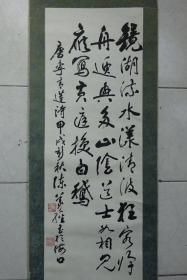 鏡湖流水漾清波狂客歸
舟逸興多山陰道士如相見
應寫黃庭換白鵝
唐李白送詩甲戌初秋陳
於海口